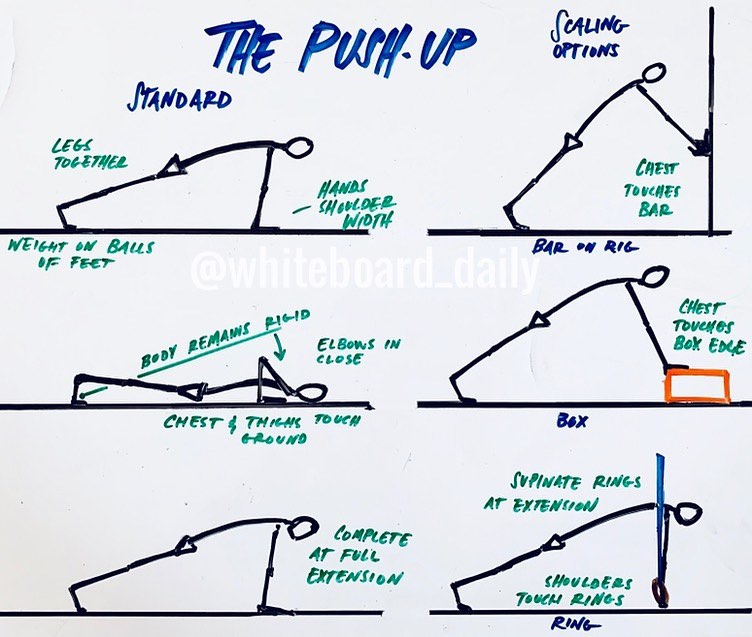 THE PUSH-UP
STANDARD
LEGS
TOGETHER
HANDS
SHOULDER
WIDTH
WEIGHT ON BALLS
OF FEET
BODY REMAINS RIGID
ELBOWS IN
CLOSE
CHEST & THIGHS TOUCH
GROUND
COMPLETE
AT FULL
EXTENSION
SCALING
OPTIONS
CHEST
TOUCHES
BAR
BAR ON RIG
@whiteboard_daily
CHEST
TOUCHES
BOX EDGE
BOX
SUPINATE RINGS
AT EXTENSION
SHOULDERS
TOUCH RINGS
RING